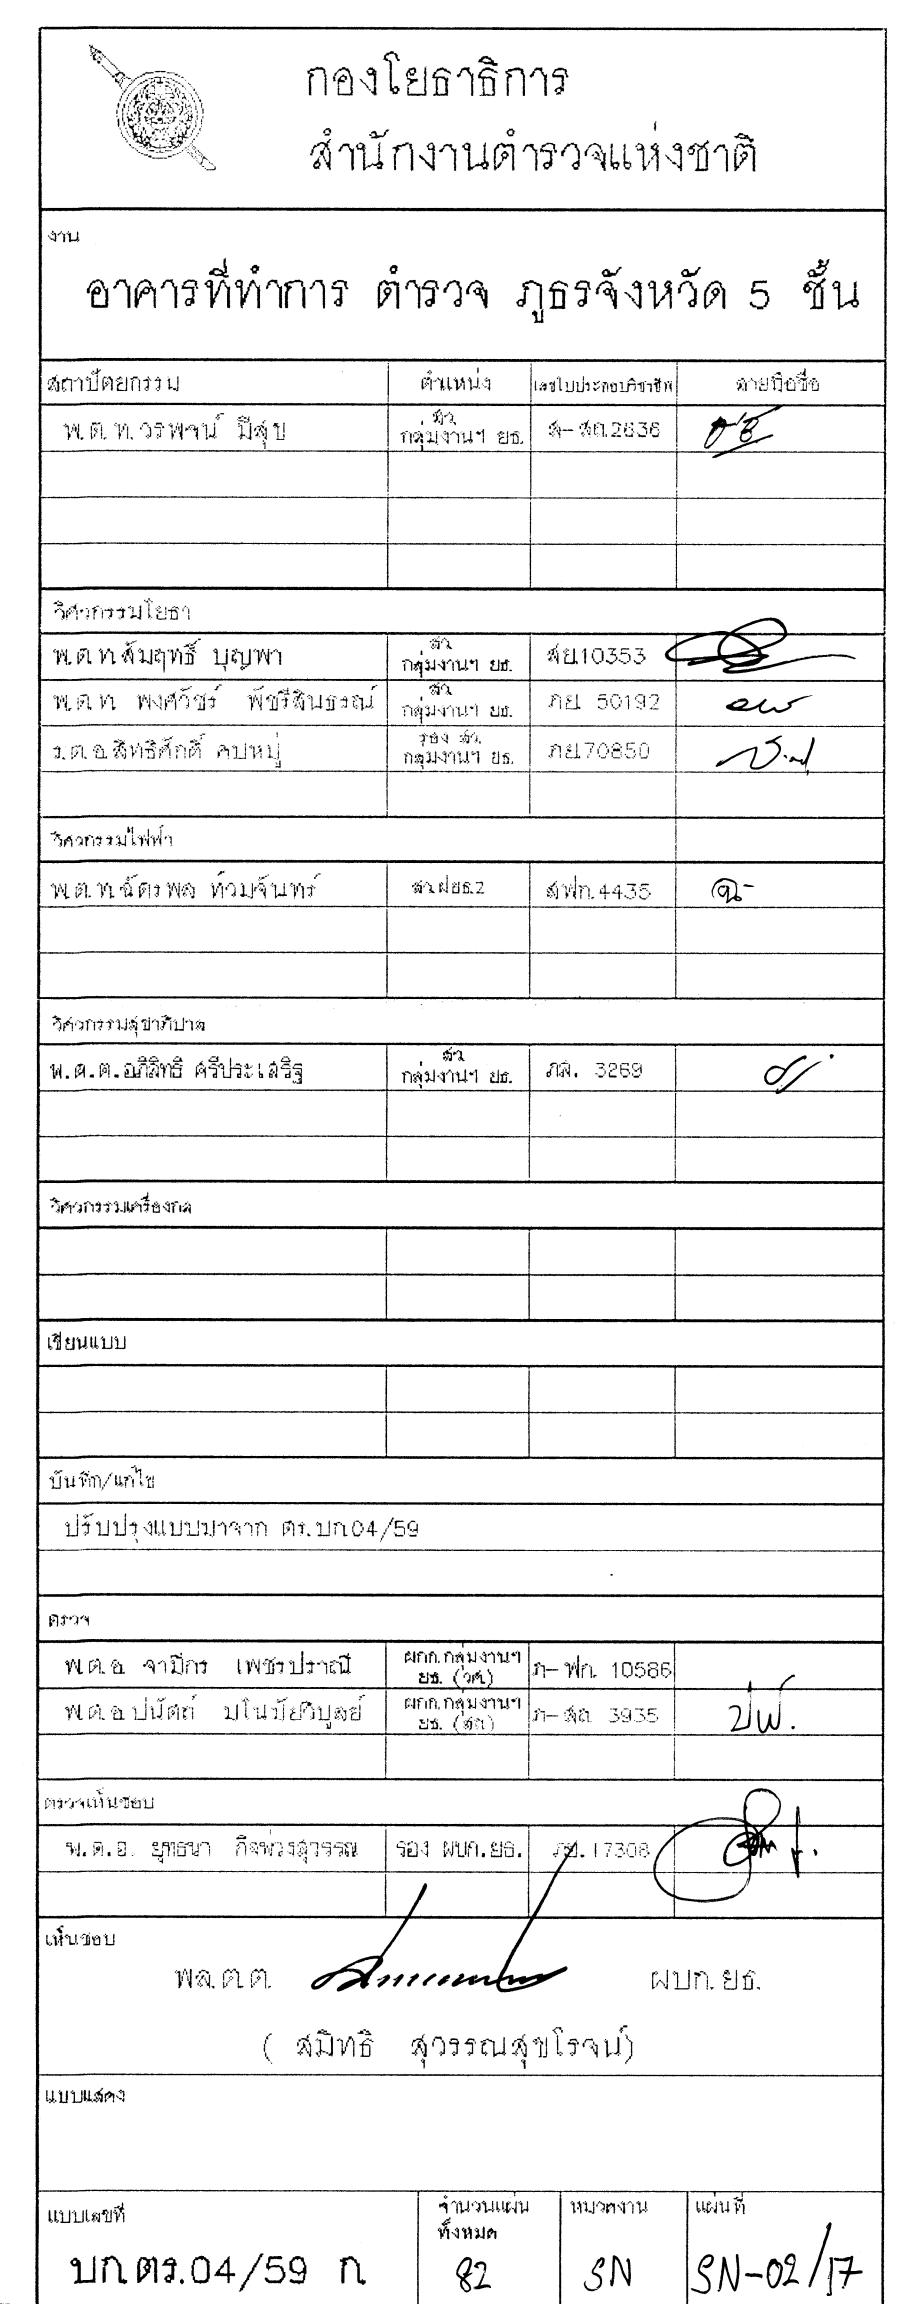 กองโยธาธิการ
สำนักงานตำรวจแห่งชาติ
งาน
อาคารที่ทำการ ตำรวจ ภูธรจังหวัด 5 ชั้น
สถาปัตยกรรม ตำแหน่ง เลขใบประกอบวิชาชีพ ลายมือชื่อ
พ.ต.ท.วรพจน์ มีสุข สว. กลุ่มงานฯ ยธ. ส-สถ.2636
วิศวกรรมโยธา
พ.ต.ท.สัมฤทธิ์ บุญพา สว. กลุ่มงานฯ ยธ. สย.10353
พ.ต.ท. พงศวัชร์ พัชรีสินธรณ์ สว. กลุ่มงานฯ ยธ. ภย. 50192
ร.ต.อ.สิทธิศักดิ์ คบหมู่ รอง สว. กลุ่มงานฯ ยธ. ภย.70850
วิศวกรรมไฟฟ้า
พ.ต.ท.ฉัตรพล ท้วมจันทร์ สว.ฝยธ.2 สฟก.4435
วิศวกรรมสุขาภิบาล
พ.ต.ต.อภิสิทธิ์ ศรีประเสริฐ สว. กลุ่มงานฯ ยธ. ภส. 3269
วิศวกรรมเครื่องกล
เขียนแบบ
บันทึก/แก้ไข
ปรับปรุงแบบมาจาก ตร.บก.04/59
ตรวจ
พ.ต.อ. จามิกร เพชรปราณี ผกก.กลุ่มงานฯ ยธ. (วศ.) ภ-ฟก. 10586
พ.ต.อ.ปนัตถ์ มโนมัยวิบูลย์ ผกก.กลุ่มงานฯ ยธ. (สถ.) ภ-สถ. 3935
ตรวจเห็นชอบ
พ.ต.อ. ยุทธนา กิจพ่วงสุวรรณ รอง ผบก.ยธ. ภย.17308
เห็นชอบ
พล.ต.ต. ผบก.ยธ.
( สมิทธิ สุวรรณสุขโรจน์)
แบบแสดง
แบบเลขที่ จำนวนแผ่น ทั้งหมด หมวดงาน แผ่นที่
บก.ตร.04/59 ก 82 SN SN-02/17